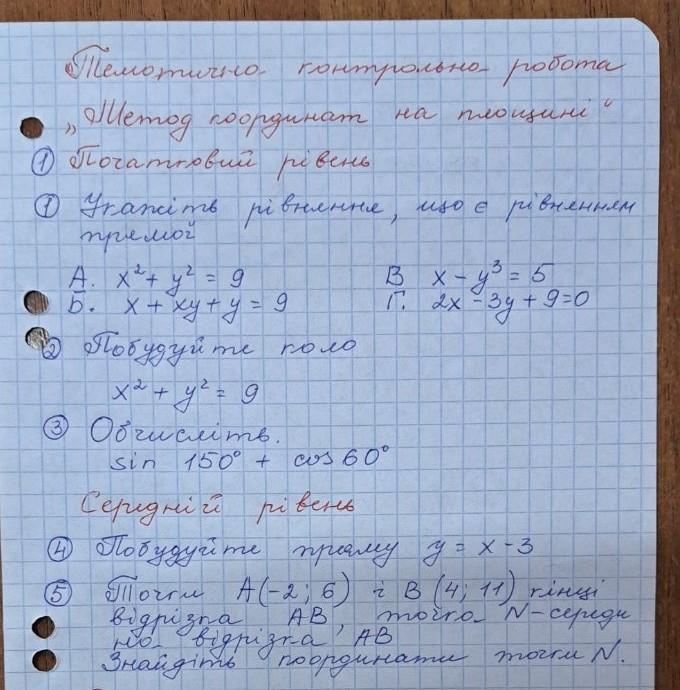 Тематична контрольна робота
„Метод координат на площині“
① Початковий рівень
① Укажіть рівняння, що є рівнянням
прямої
А. x² + y² = 9 В x - y³ = 5
Б. x + xy + y = 9 Г. 2x - 3y + 9 = 0
② Побудуйте коло
x² + y² = 9
③ Обчисліть.
sin 150° + cos 60°
Середній рівень
④ Побудуйте пряму y = x - 3
⑤ Точки A(-2; 6) і B (4; 11) кінці
відрізка AB, точка N - середи
на відрізка AB
Знайдіть координати точки N.